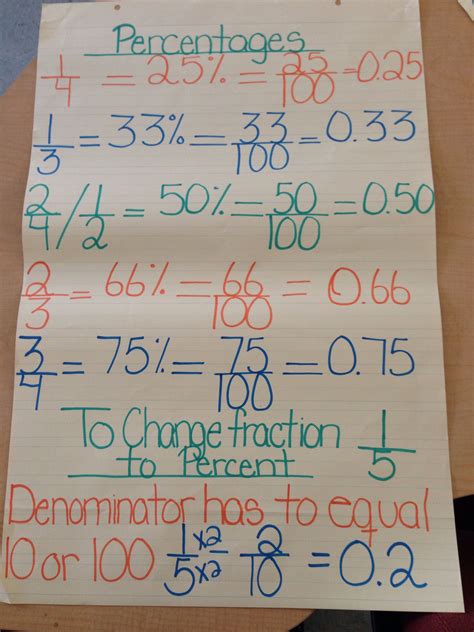 Percentages
1/4 = 25% = 25/100 = 0.25
1/3 = 33% = 33/100 = 0.33
2/4 / 1/2 = 50% = 50/100 = 0.50
2/3 = 66% = 66/100 = 0.66
3/4 = 75% = 75/100 = 0.75
To Change fraction 1/5
to Percent
Denominator has to equal
10 or 100 1/5 ×2/×2 2/10 = 0.2